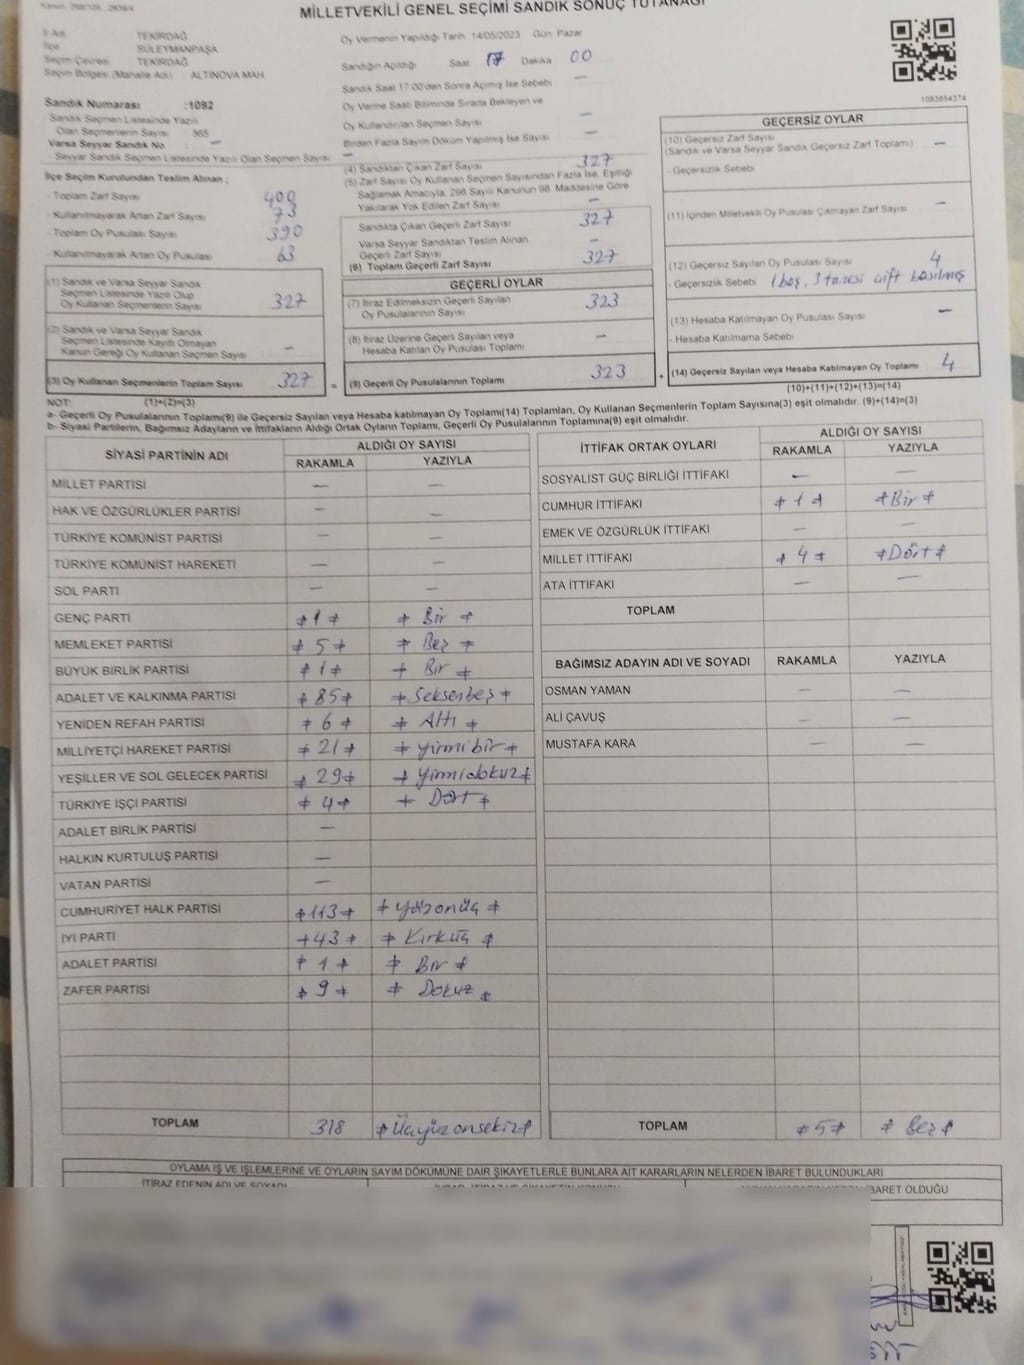 MİLLETVEKİLİ GENEL SEÇİMİ SANDIK SONUÇ TUTANAĞI
İl Adı TEKİRDAĞ
İlçe SÜLEYMANPAŞA
Seçim Çevresi TEKİRDAĞ
Seçim Bölgesi (Mahalle Adı) ALTINOVA MAH
Sandık Numarası :1092
- Sandık Seçmen Listesinde Yazılı
Olan Seçmenlerin Sayısı 365
Varsa Seyyar Sandık No —
- Seyyar Sandık Seçmen Listesinde Yazılı Olan Seçmen Sayısı: —
İlçe Seçim Kurulundan Teslim Alınan ;
- Toplam Zarf Sayısı 400
- Kullanılmayarak Artan Zarf Sayısı 73
- Toplam Oy Pusulası Sayısı 390
- Kullanılmayarak Artan Oy Pusulası 63
(1) Sandık ve Varsa Seyyar Sandık
Seçmen Listesinde Yazılı Olup
Oy Kullanan Seçmenlerin Sayısı 327
(2) Sandık ve Varsa Seyyar Sandık
Seçmen Listesinde Kayıtlı Olmayan
Kanun Gereği Oy Kullanan Seçmen Sayısı —
(3) Oy Kullanan Seçmenlerin Toplam Sayısı 327 =
Oy Vermenin Yapıldığı Tarih 14/05/2023 Gün Pazar
Sandığın Açıldığı Saat 17 Dakika 00
Sandık Saat 17:00'den Sonra Açılmış İse Sebebi —
Oy Verme Saati Bitiminde Sırada Bekleyen ve
Oy Kullandırılan Seçmen Sayısı —
Birden Fazla Sayım Döküm Yapılmış İse Sayısı —
(4) Sandıktan Çıkan Zarf Sayısı 327
(5) Zarf Sayısı Oy Kullanan Seçmen Sayısından Fazla İse, Eşitliği
Sağlamak Amacıyla, 298 Sayılı Kanunun 98. Maddesine Göre
Yakılarak Yok Edilen Zarf Sayısı —
Sandıkta Çıkan Geçerli Zarf Sayısı 327
Varsa Seyyar Sandıktan Teslim Alınan
Geçerli Zarf Sayısı —
(6) Toplam Geçerli Zarf Sayısı 327
GEÇERLİ OYLAR
(7) İtiraz Edilmeksizin Geçerli Sayılan
Oy Pusulalarının Sayısı 323
(8) İtiraz Üzerine Geçerli Sayılan veya
Hesaba Katılan Oy Pusulası Toplamı —
(9) Geçerli Oy Pusulalarının Toplamı 323 +
1083854374
GEÇERSİZ OYLAR
(10) Geçersiz Zarf Sayısı
(Sandık ve Varsa Seyyar Sandık Geçersiz Zarf Toplamı) —
- Geçersizlik Sebebi
(11) İçinden Milletvekili Oy Pusulası Çıkmayan Zarf Sayısı —
(12) Geçersiz Sayılan Oy Pusulası Sayısı 4
- Geçersizlik Sebebi 1 boş, 3 tanesi çift basılmış
(13) Hesaba Katılmayan Oy Pusulası Sayısı —
- Hesaba Katılmama Sebebi
(14) Geçersiz Sayılan veya Hesaba Katılmayan Oy Toplamı 4
NOT: (1)+(2)=(3) (10)+(11)+(12)+(13)=(14)
a- Geçerli Oy Pusulalarının Toplamı(9) ile Geçersiz Sayılan veya Hesaba katılmayan Oy Toplamı(14) Toplamları, Oy Kullanan Seçmenlerin Toplam Sayısına(3) eşit olmalıdır. (9)+(14)=(3)
b- Siyasi Partilerin, Bağımsız Adayların ve İttifakların Aldığı Ortak Oyların Toplamı, Geçerli Oy Pusulalarının Toplamına(9) eşit olmalıdır.
SİYASİ PARTİNİN ADI ALDIĞI OY SAYISI
RAKAMLA YAZIYLA
MİLLET PARTİSİ — —
HAK VE ÖZGÜRLÜKLER PARTİSİ — —
TÜRKİYE KOMÜNİST PARTİSİ — —
TÜRKİYE KOMÜNİST HAREKETİ — —
SOL PARTİ — —
GENÇ PARTİ +1+ + Bir +
MEMLEKET PARTİSİ +5+ + Beş +
BÜYÜK BİRLİK PARTİSİ +1+ + Bir +
ADALET VE KALKINMA PARTİSİ +85+ +Seksenbeş+
YENİDEN REFAH PARTİSİ +6+ + Altı +
MİLLİYETÇİ HAREKET PARTİSİ +21+ + yirmibir+
YEŞİLLER VE SOL GELECEK PARTİSİ +29+ + yirmidokuz+
TÜRKİYE İŞÇİ PARTİSİ +4+ + Dört +
ADALET BİRLİK PARTİSİ —
HALKIN KURTULUŞ PARTİSİ —
VATAN PARTİSİ —
CUMHURİYET HALK PARTİSİ +113+ + yüzonüç +
İYİ PARTİ +43+ + Kırküç +
ADALET PARTİSİ +1+ + Bir +
ZAFER PARTİSİ +9+ + Dokuz +
TOPLAM 318 +Üçyüzonsekiz+
İTTİFAK ORTAK OYLARI ALDIĞI OY SAYISI
RAKAMLA YAZIYLA
SOSYALİST GÜÇ BİRLİĞİ İTTİFAKI — —
CUMHUR İTTİFAKI +1+ +Bir+
EMEK VE ÖZGÜRLÜK İTTİFAKI — —
MİLLET İTTİFAKI +4+ +Dört+
ATA İTTİFAKI — —
TOPLAM
BAĞIMSIZ ADAYIN ADI VE SOYADI RAKAMLA YAZIYLA
OSMAN YAMAN — —
ALİ ÇAVUŞ — —
MUSTAFA KARA — —
TOPLAM +5+ + Beş+
OYLAMA İŞ VE İŞLEMLERİNE VE OYLARIN SAYIM DÖKÜMÜNE DAİR ŞİKAYETLERLE BUNLARA AİT KARARLARIN NELERDEN İBARET BULUNDUKLARI
İTİRAZ EDENİN ADI VE SOYADI
İBARET OLDUĞU